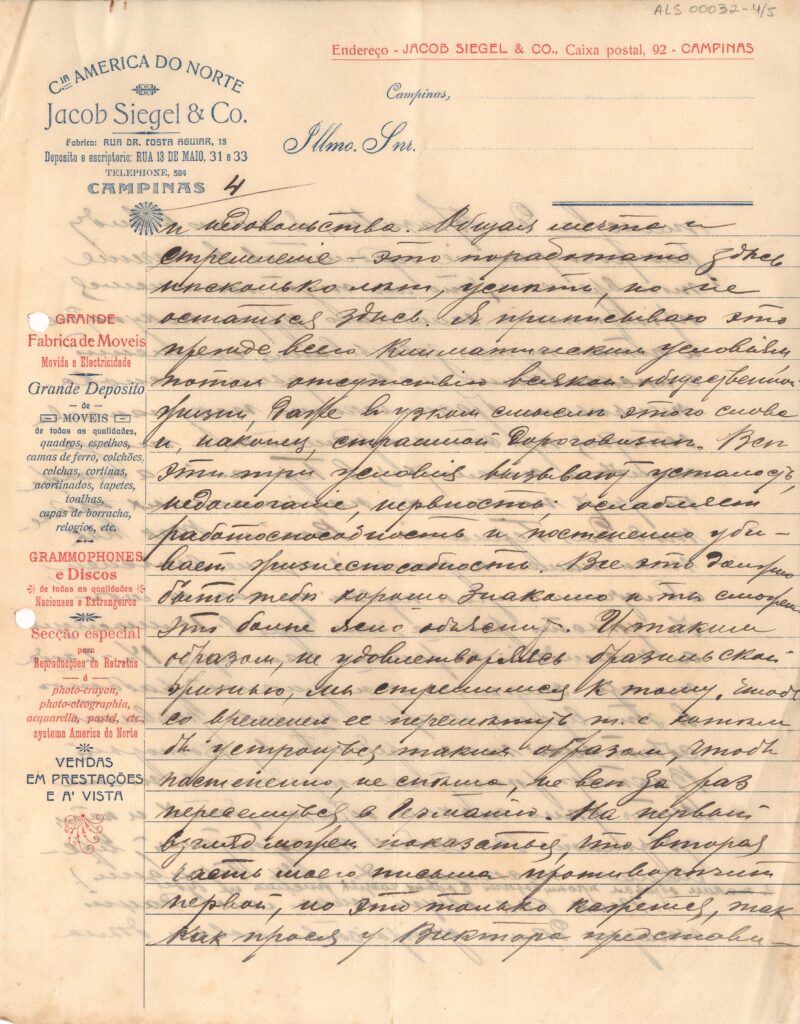 ALS 00032-4/5
Endereço - JACOB SIEGEL & CO., Caixa postal, 92 - CAMPINAS
Cia AMERICA DO NORTE
Jacob Siegel & Co.
Fabrica: RUA DR. COSTA AGUIAR, 15
Deposito e escriptorio: RUA 13 DE MAIO, 31 e 33
TELEPHONE, 584
CAMPINAS
Campinas,
Illmo. Snr.
4
GRANDE
Fabrica de Moveis
Movida a Electricidade
Grande Deposito
de
MOVEIS
de todas as qualidades,
quadros, espelhos,
camas de ferro, colchões,
colchas, cortinas,
acortinados, tapetes,
toalhas,
capas de borracha,
relogios, etc.
GRAMMOPHONES
e Discos
de todas as qualidades
Nacionaes e Extrangeiros
Secção especial
para
Reproducções de Retratos
á
photo-crayon,
photo-oleographia,
acquarello, pastel, etc.,
systema America do Norte
VENDAS
EM PRESTAÇÕES
E A' VISTA
и недовольства. Общая мечта и
стремленіе — это поработать здѣсь
нѣсколько лѣт, успѣть, но не
остаться здѣсь. Я приписываю это
прежде всего климатическим условіям,
потом отсутствію всякой общественной
жизни, даже в узком смыслѣ этого слова
и, наконец, страшной дороговизнѣ. Всѣ
эти три условія вызывают усталость,
недомоганіе, нервность, ослабляет
работоспособность и постепенно уби-
вает жизнеспособность. Все это должно
быть тебѣ хорошо знакомо и ты сможешь
это болѣе ясно объяснить. И таким
образом, не удовлетворяясь бразильской
жизнью, мы стремимся к тому, чтобы
со временем ее перемѣнить т. е. хотѣли
бы устроиться таким образом, чтобы
постепенно, не спѣша, не всѣ за раз
переселиться в Испанію. На первый
взгляд может показаться, что вторая
часть моего письма противорѣчит
первой, но это только кажется, так
как прося у Виктора представи-